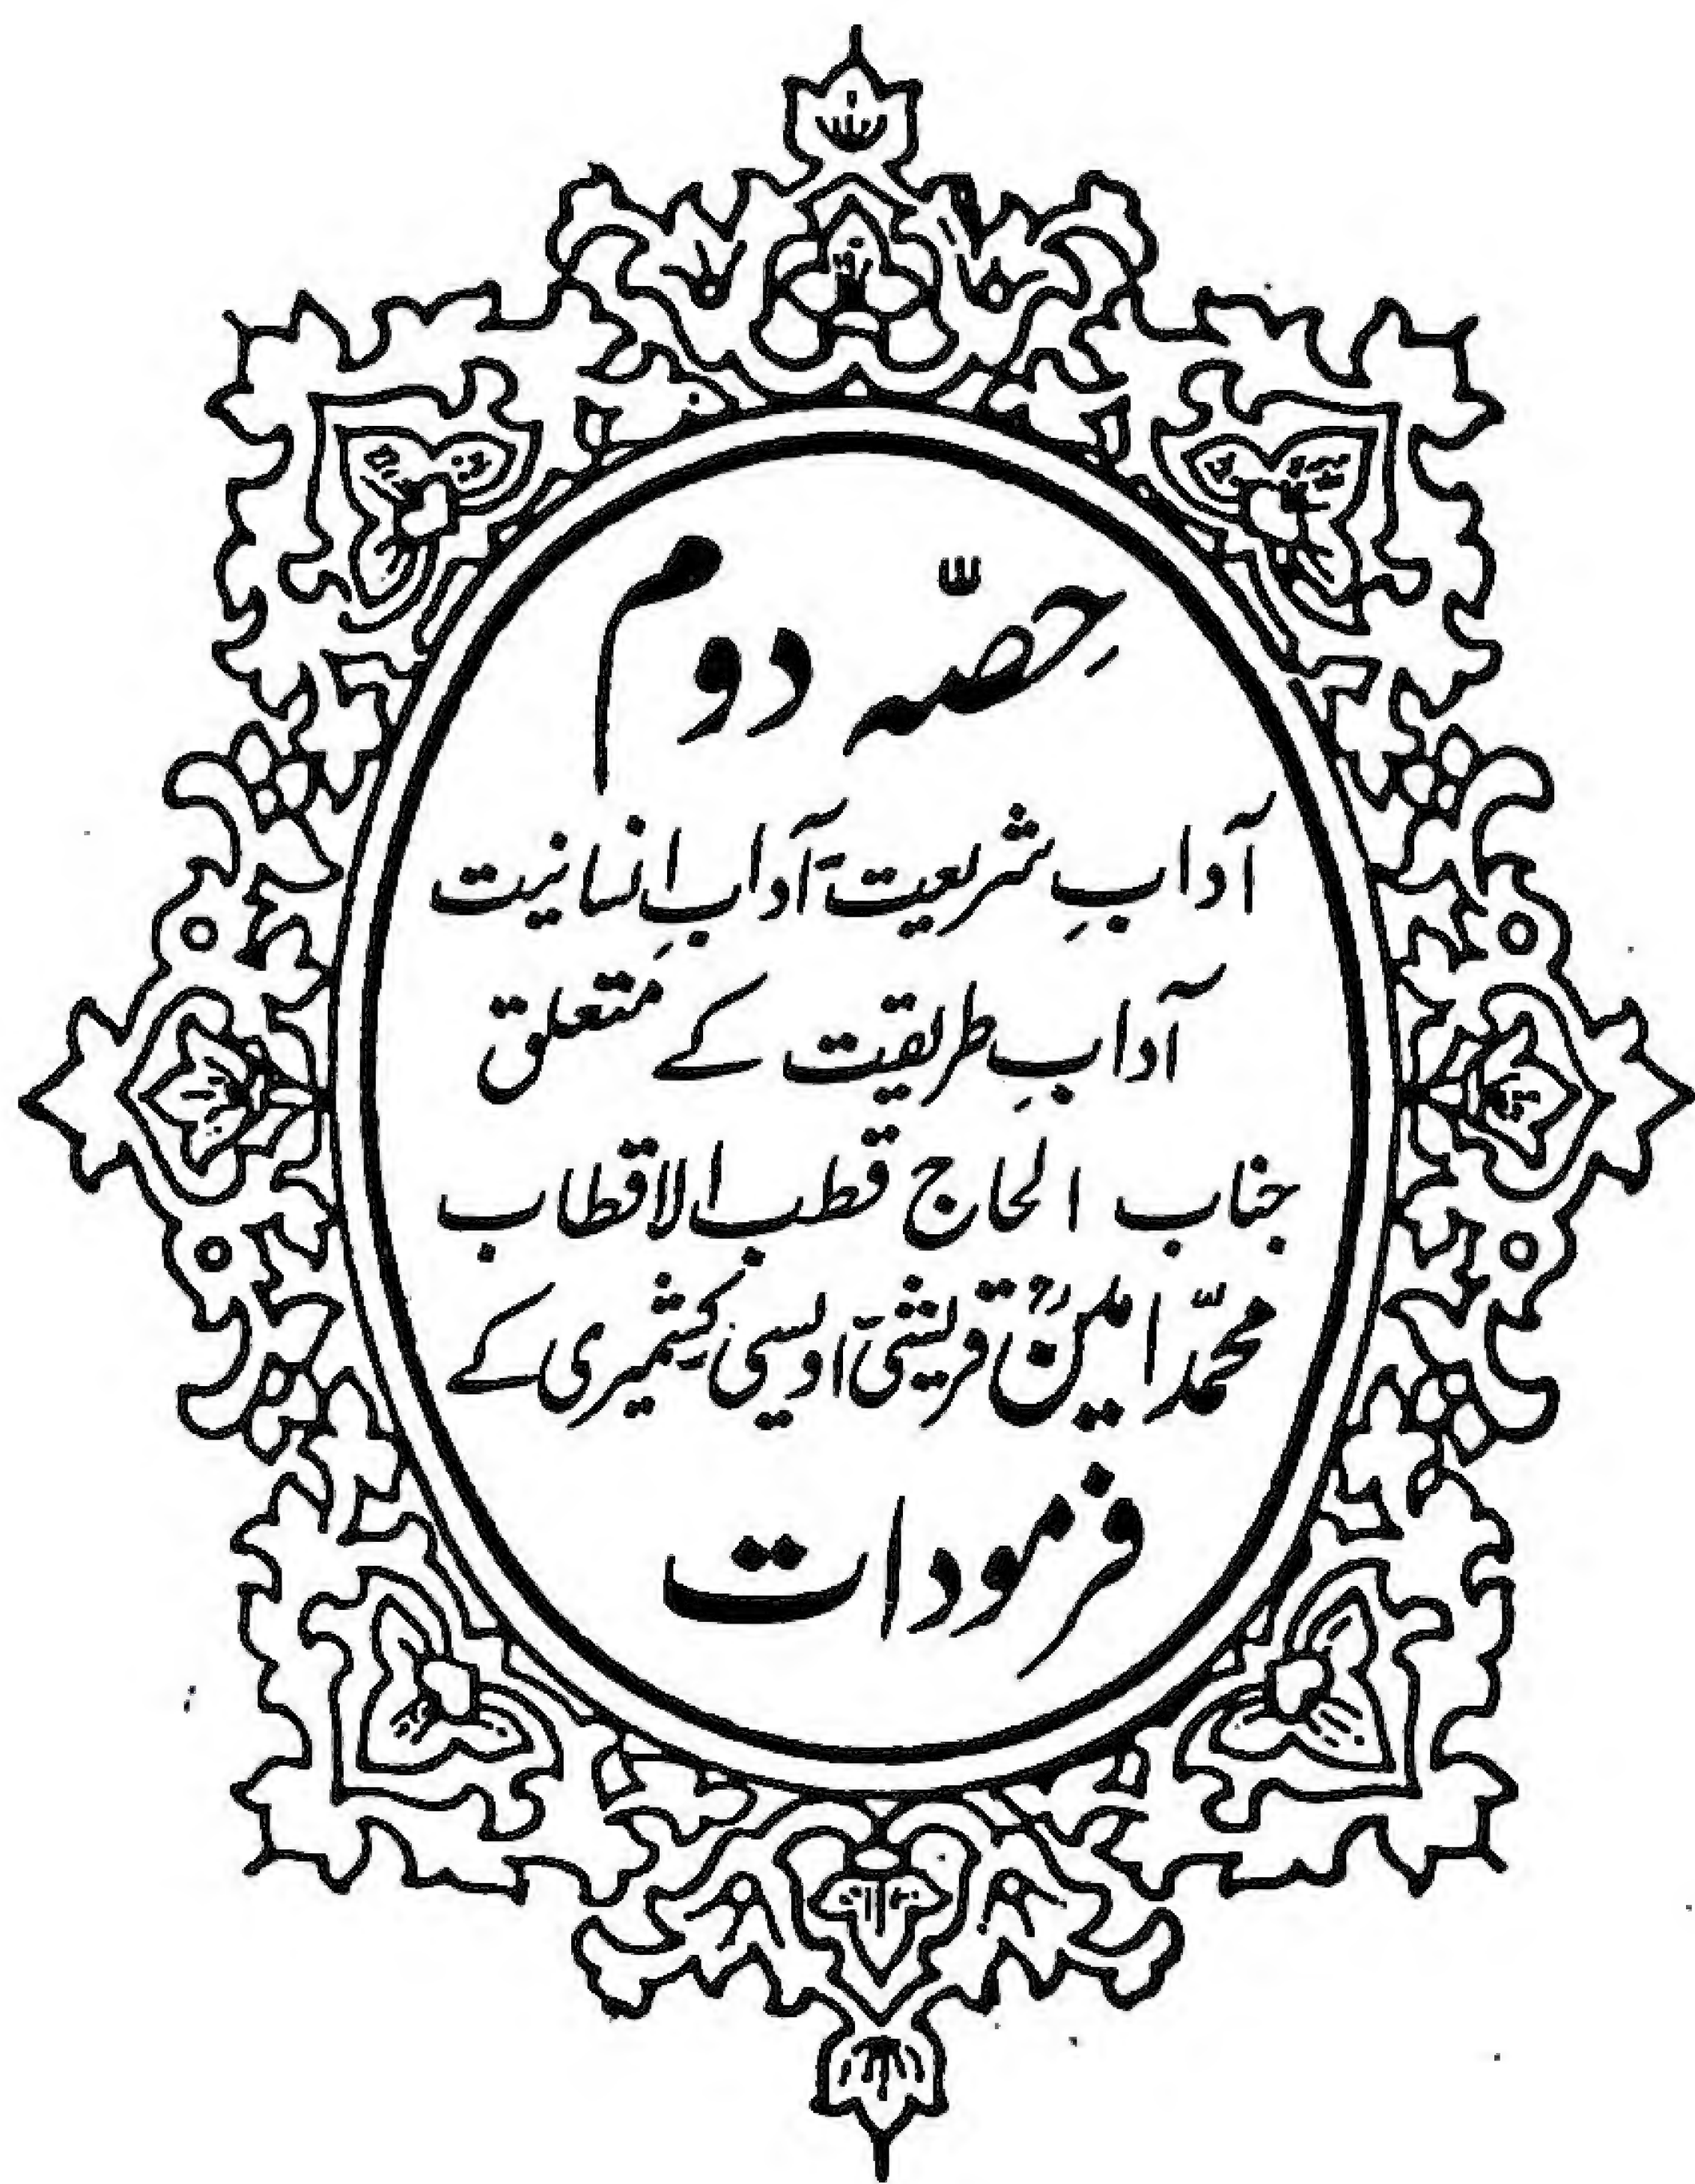 حِصّہ دوم
آدابِ شریعت۔ آدابِ انسانیت
آدابِ طریقت کے متعلق
جناب الحاج قطب الاقطاب
محمّد امینؒ قریشی۔ اویسی۔ کشمیری کے
فرمودات